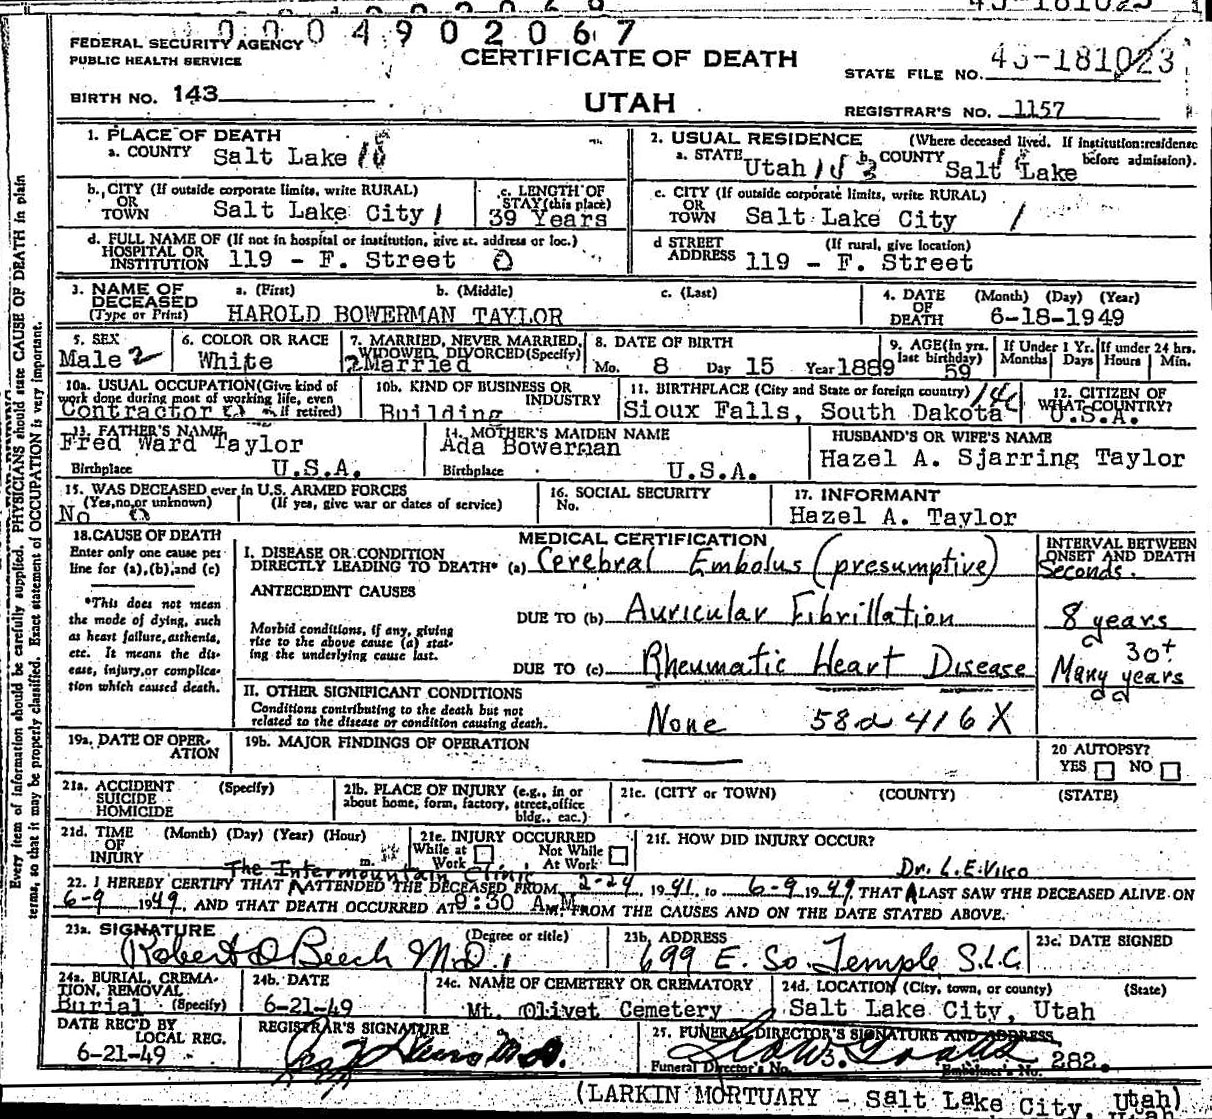 0 0 0 4 9 0 2 0 6 7
FEDERAL SECURITY AGENCY
PUBLIC HEALTH SERVICE
CERTIFICATE OF DEATH
STATE FILE NO. 45-181023
BIRTH NO. 143
UTAH
REGISTRAR'S NO. 1157
1. PLACE OF DEATH
a. COUNTY Salt Lake 18
2. USUAL RESIDENCE (Where deceased lived. If institution:residence before admission).
a. STATE Utah b. COUNTY Salt Lake
b. CITY (If outside corporate limits, write RURAL)
OR TOWN Salt Lake City 1
c. LENGTH OF STAY (this place)
39 Years
c. CITY (If outside corporate limits, write RURAL)
OR TOWN Salt Lake City 1
d. FULL NAME OF (If not in hospital or institution, give st. address or loc.)
HOSPITAL OR INSTITUTION 119 - F. Street 0
d STREET ADDRESS (If rural, give location)
119 - F. Street
3. NAME OF DECEASED (Type or Print)
a. (First) b. (Middle) c. (Last)
HAROLD BOWERMAN TAYLOR
4. DATE OF DEATH (Month) (Day) (Year)
6-18-1949
5. SEX
Male 2
6. COLOR OR RACE
White
7. MARRIED, NEVER MARRIED, WIDOWED, DIVORCED (Specify)
2 Married
8. DATE OF BIRTH
Mo. 8 Day 15 Year 1889
9. AGE (In yrs. last birthday)
59
If Under 1 Yr. Months Days
If under 24 hrs. Hours Min.
10a. USUAL OCCUPATION (Give kind of work done during most of working life, even if retired)
Contractor
10b. KIND OF BUSINESS OR INDUSTRY
Building
11. BIRTHPLACE (City and State or foreign country)
Sioux Falls, South Dakota
12. CITIZEN OF WHAT COUNTRY?
U.S.A.
13. FATHER'S NAME
Fred Ward Taylor
Birthplace U.S.A.
14. MOTHER'S MAIDEN NAME
Ada Bowerman
Birthplace U.S.A.
HUSBAND'S OR WIFE'S NAME
Hazel A. Sjarring Taylor
15. WAS DECEASED ever in U.S. ARMED FORCES
(Yes, no, or unknown) (If yes, give war or dates of service)
No 0
16. SOCIAL SECURITY No.
17. INFORMANT
Hazel A. Taylor
18. CAUSE OF DEATH
Enter only one cause per line for (a), (b), and (c)
*This does not mean the mode of dying, such as heart failure, asthenia, etc. It means the disease, injury, or complication which caused death.
MEDICAL CERTIFICATION
INTERVAL BETWEEN ONSET AND DEATH
I. DISEASE OR CONDITION DIRECTLY LEADING TO DEATH* (a) Cerebral Embolus (presumptive)
Seconds.
ANTECEDENT CAUSES
Morbid conditions, if any, giving rise to the above cause (a) stating the underlying cause last.
DUE TO (b) Auricular Fibrillation
8 years
DUE TO (c) Rheumatic Heart Disease
30+
Many years
II. OTHER SIGNIFICANT CONDITIONS
Conditions contributing to the death but not related to the disease or condition causing death.
None 58a 416X
19a. DATE OF OPERATION
19b. MAJOR FINDINGS OF OPERATION
20 AUTOPSY?
YES NO
21a. ACCIDENT SUICIDE HOMICIDE (Specify)
21b. PLACE OF INJURY (e.g., in or about home, form, factory, street, office bldg., eac.)
21c. (CITY or TOWN) (COUNTY) (STATE)
21d. TIME OF INJURY (Month) (Day) (Year) (Hour) m.
21e. INJURY OCCURRED
While at Work Not While At Work
21f. HOW DID INJURY OCCUR?
The Intermountain Clinic Dr. L. E. Viko
22. I HEREBY CERTIFY THAT ATTENDED THE DECEASED FROM 2-24, 1941, to 6-9, 1949, THAT LAST SAW THE DECEASED ALIVE ON
6-9 1949, AND THAT DEATH OCCURRED AT 9:30 A.M. FROM THE CAUSES AND ON THE DATE STATED ABOVE.
23a. SIGNATURE (Degree or title)
Robert D Beech M.D.
23b. ADDRESS
699 E. So. Temple S.L.C.
23c. DATE SIGNED
24a. BURIAL, CREMATION, REMOVAL (Specify)
Burial
24b. DATE
6-21-49
24c. NAME OF CEMETERY OR CREMATORY
Mt. Olivet Cemetery
24d. LOCATION (City, town, or county) (State)
Salt Lake City, Utah
DATE REC'D BY LOCAL REG.
6-21-49
REGISTRAR'S SIGNATURE
25. FUNERAL DIRECTOR'S SIGNATURE AND ADDRESS
Funeral Director's No. 3. Embalmer's No. 282.
(LARKIN MORTUARY - Salt Lake City, Utah)
Every item of information should be carefully supplied. PHYSICIANS should state CAUSE OF DEATH in plain
terms, so that it may be properly classified. Exact statement of OCCUPATION is very important.